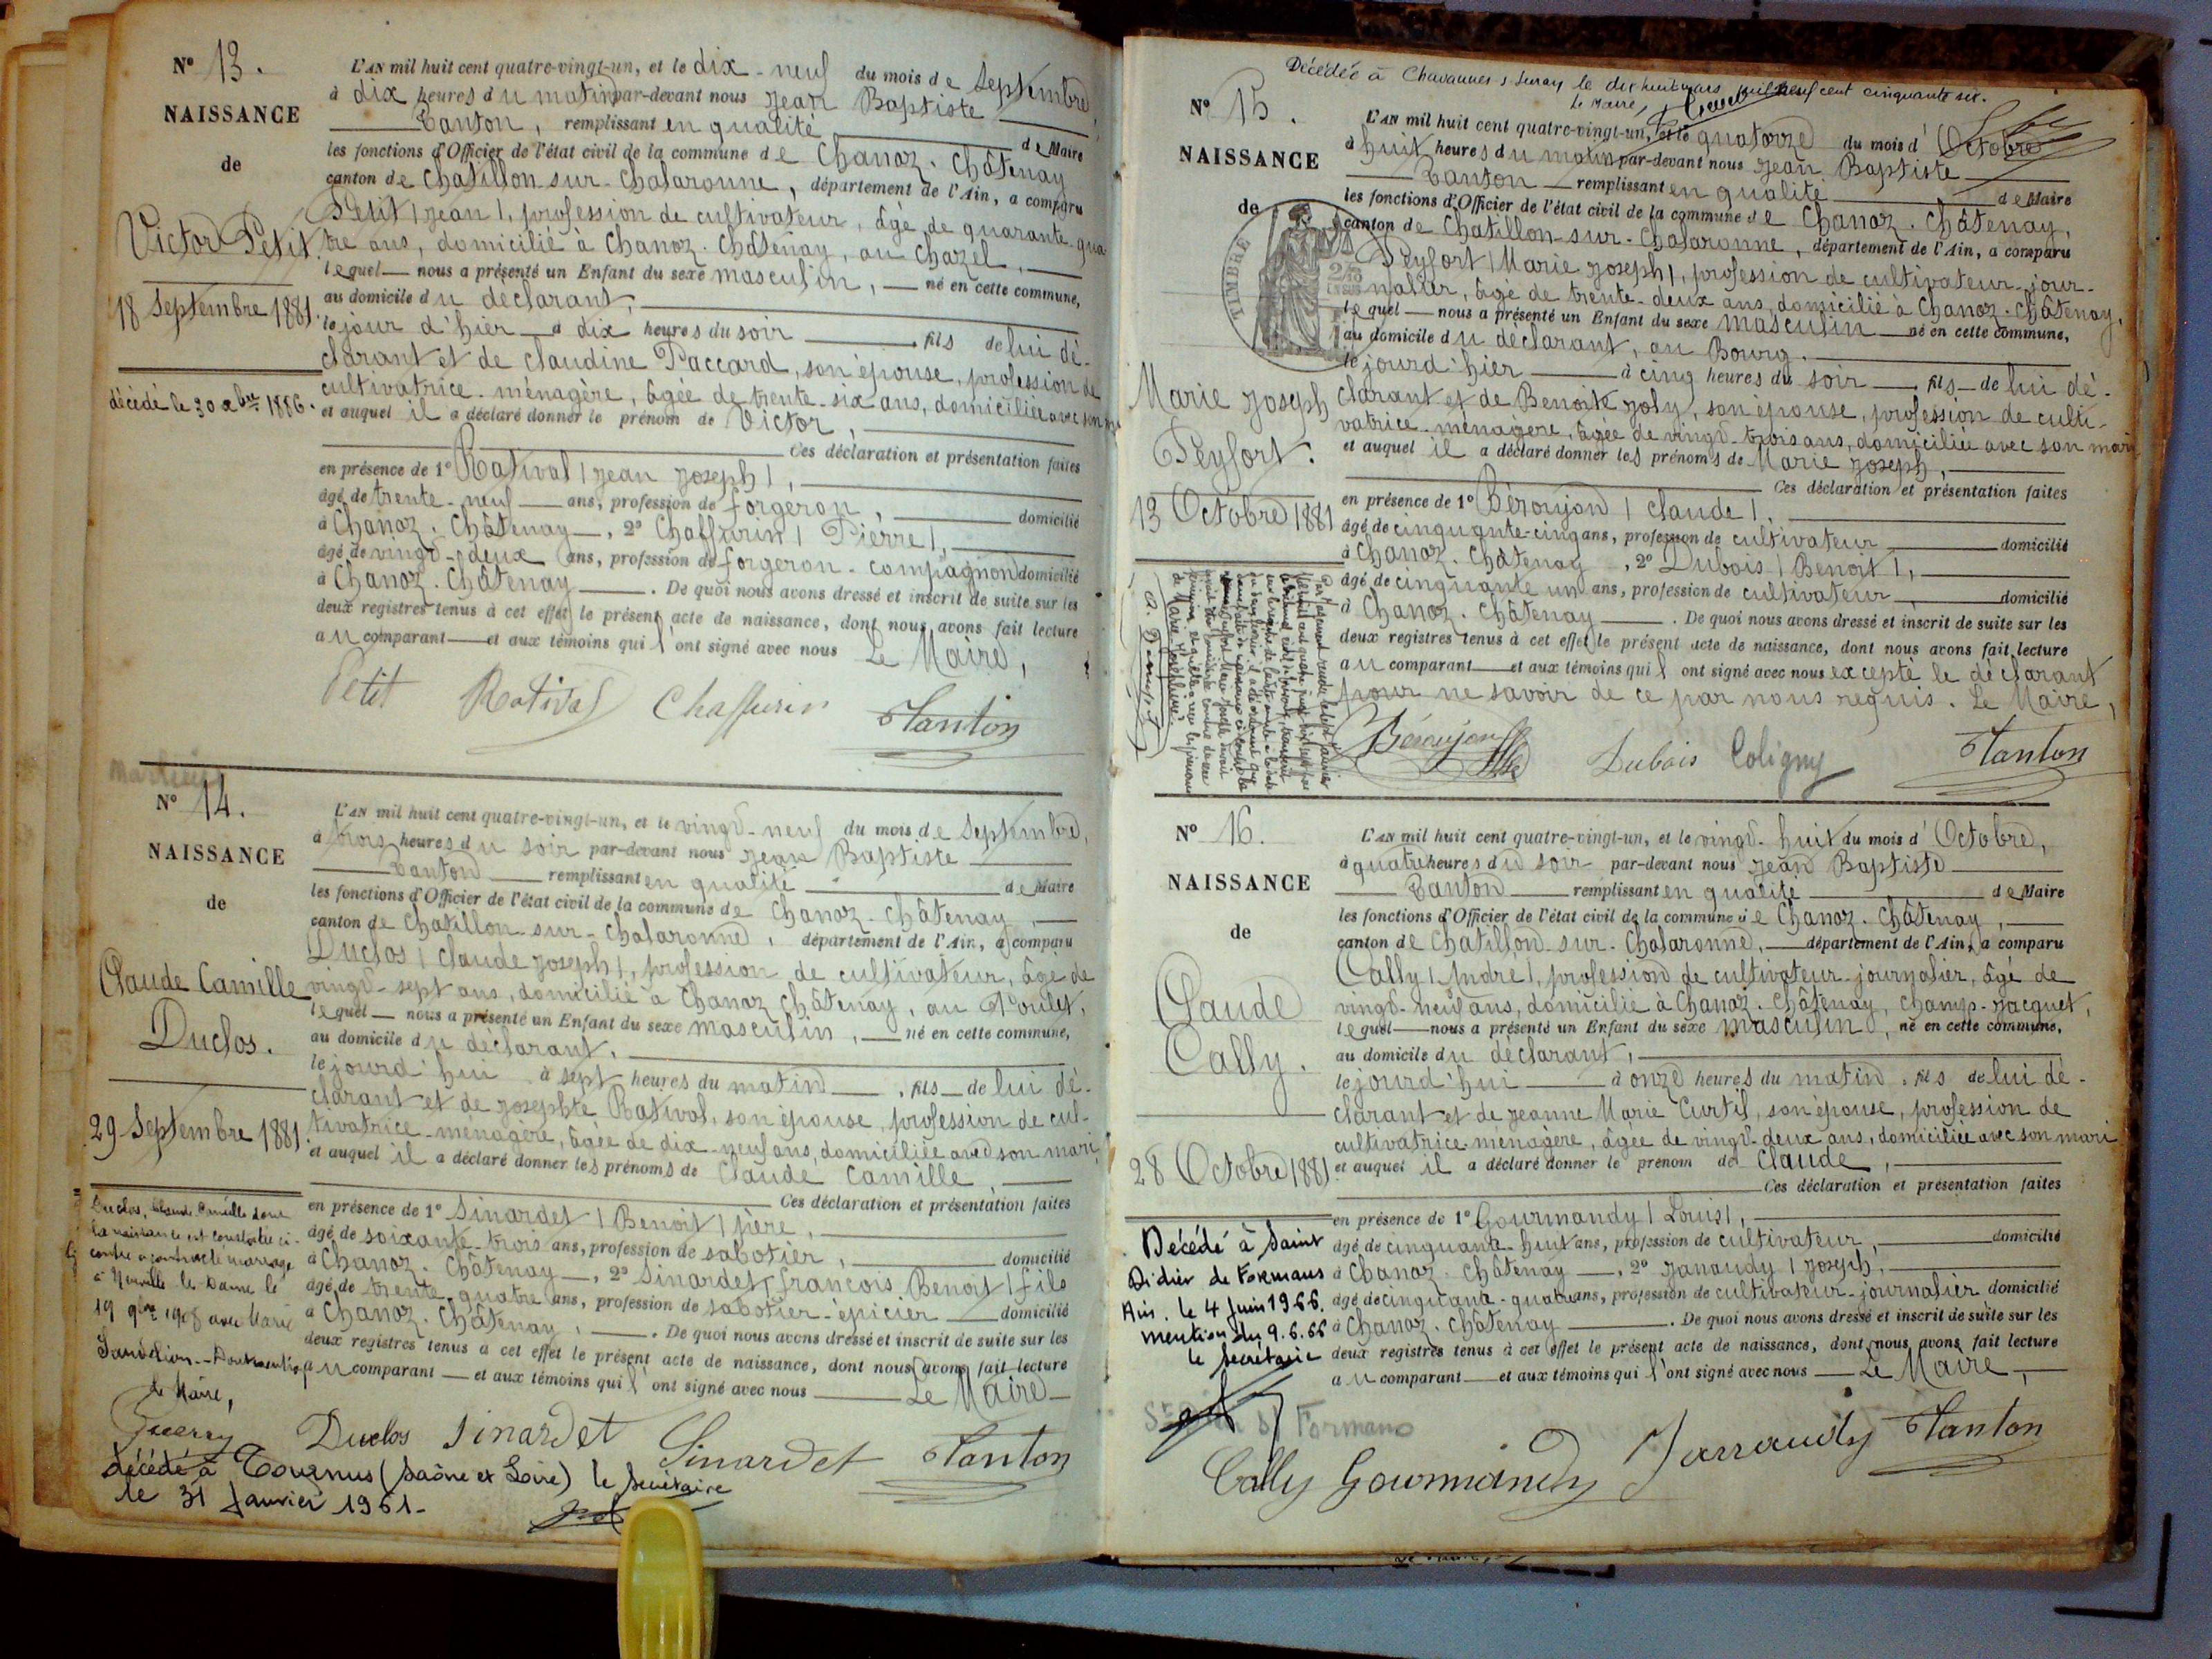 N° 13.
NAISSANCE
de
Victor Petit.
18 Septembre 1881.
décédé le 30 xbre 1886.
L'AN mil huit cent quatre-vingt-un, et le dix-neuf du mois de Septembre,
à dix heures du matin par-devant nous Jean Baptiste
Tanton, remplissant en qualité de Maire
les fonctions d'Officier de l'état civil de la commune de Chanoz-Châtenay
canton de Chatillon-sur-Chalaronne, département de l'Ain, a comparu
Petit (Jean), profession de cultivateur, âgé de quarante-qua
tre ans, domicilié à Chanoz-Châtenay, au Chazel,
lequel nous a présenté un Enfant du sexe masculin, né en cette commune,
au domicile du déclarant,
le jour d'hier à dix heures du soir fils de lui dé-
clarant et de Claudine Paccard, son épouse, profession de
cultivatrice-ménagère, âgée de trente-six ans, domiciliée avec son
et auquel il a déclaré donner le prénom de Victor,
Ces déclaration et présentation faites
en présence de 1° Rativat (Jean Joseph),
âgé de trente-neuf ans, profession de forgeron, domicilié
à Chanoz-Châtenay, 2° Chaffurin (Pierre),
âgé de vingt-deux ans, profession de forgeron-compagnon domicilié
à Chanoz-Châtenay. De quoi nous avons dressé et inscrit de suite sur les
deux registres tenus à cet effet le présent acte de naissance, dont nous avons fait lecture
au comparant et aux témoins qui l'ont signé avec nous Le Maire,
Petit Rativat Chaffurin Tanton
N° 14.
NAISSANCE
de
Claude Camille
Duclos.
29 Septembre 1881.
L'AN mil huit cent quatre-vingt-un, et le vingt-neuf du mois de Septembre,
à trois heures du soir par-devant nous Jean Baptiste
Tanton remplissant en qualité de Maire
les fonctions d'Officier de l'état civil de la commune de Chanoz-Châtenay,
canton de Chatillon-sur-Chalaronne, département de l'Ain, a comparu
Duclos (Claude Joseph), profession de cultivateur, âgé de
vingt-sept ans, domicilié à Chanoz Châtenay, au Poulet,
lequel nous a présenté un Enfant du sexe masculin, né en cette commune,
au domicile du déclarant,
le jourd'hui à sept heures du matin, fils de lui dé-
clarant et de Josephte Rativat, son épouse, profession de cul-
tivatrice-ménagère, âgée de dix-neuf ans, domiciliée avec son mari,
et auquel il a déclaré donner les prénoms de Claude Camille,
Ces déclaration et présentation faites
en présence de 1° Sinardet (Benoit) père,
âgé de soixante-trois ans, profession de sabotier, domicilié
à Chanoz-Châtenay, 2° Sinardet (François Benoit) fils
âgé de trente-quatre ans, profession de sabotier-épicier domicilié
à Chanoz-Châtenay. De quoi nous avons dressé et inscrit de suite sur les
deux registres tenus à cet effet le présent acte de naissance, dont nous avons fait lecture
au comparant et aux témoins qui l'ont signé avec nous Le Maire
Duclos, Claude Camille dont
la naissance est constatée ci-
contre a contracté mariage
à Neuville les Dames le
19 9bre 1908 avec Marie
le Maire,
Duclos Sinardet Sinardet Tanton
décédé à Tournus (Saône et Loire) le Secrétaire
le 31 Janvier 1961-
Décédée à Chavannes s Suran le dix huit mars mil neuf cent cinquante six.
Le Maire,
N° 15.
NAISSANCE
de
TIMBRE
Marie Joseph
Peyfort.
13 Octobre 1881
L'AN mil huit cent quatre-vingt-un, et le quatorze du mois d'Octobre
à huit heures du matin par-devant nous Jean Baptiste
Tanton remplissant en qualité de Maire
les fonctions d'Officier de l'état civil de la commune de Chanoz-Châtenay,
canton de Chatillon-sur-Chalaronne, département de l'Ain, a comparu
Peyfort (Marie Joseph), profession de cultivateur-jour-
nalier, âgé de trente-deux ans, domicilié à Chanoz-Châtenay,
lequel nous a présenté un Enfant du sexe masculin né en cette commune,
au domicile du déclarant, au Bourg.
le jour d'hier à cinq heures du soir fils de lui dé-
clarant et de Benoite Joly, son épouse, profession de culti-
vatrice-ménagère, âgée de vingt-trois ans, domiciliée avec son mari
et auquel il a déclaré donner les prénoms de Marie Joseph,
Ces déclaration et présentation faites
en présence de 1° Béroujon (Claude),
âgé de cinquante-cinq ans, profession de cultivateur domicilié
à Chanoz-Châtenay, 2° Dubois (Benoit),
âgé de cinquante un ans, profession de cultivateur domicilié
à Chanoz-Châtenay. De quoi nous avons dressé et inscrit de suite sur les
deux registres tenus à cet effet le présent acte de naissance, dont nous avons fait lecture
au comparant et aux témoins qui l'ont signé avec nous excepté le déclarant
pour ne savoir de ce par nous requis. Le Maire,
Béroujon Dubois Coligny Tanton
N° 16.
NAISSANCE
de
Claude
Cally.
28 Octobre 1881.
L'AN mil huit cent quatre-vingt-un, et le vingt-huit du mois d'Octobre,
à quatre heures du soir par-devant nous Jean Baptiste
Tanton remplissant en qualité de Maire
les fonctions d'Officier de l'état civil de la commune de Chanoz-Châtenay,
canton de Chatillon-sur-Chalaronne, département de l'Ain, a comparu
Cally (André), profession de cultivateur-journalier, âgé de
vingt-neuf ans, domicilié à Chanoz-Châtenay, Champ-Jacquet,
lequel nous a présenté un Enfant du sexe masculin, né en cette commune,
au domicile du déclarant,
le jourd'hui à onze heures du matin, fils de lui dé-
clarant et de Jeanne Marie Curtil, son épouse, profession de
cultivatrice-ménagère, âgée de vingt-deux ans, domiciliée avec son mari
et auquel il a déclaré donner le prénom de Claude,
Ces déclaration et présentation faites
en présence de 1° Gourmandy (Louis),
âgé de cinquante-huit ans, profession de cultivateur, domicilié
à Chanoz-Châtenay, 2° Janaudy (Joseph),
âgé de cinquante-quatre ans, profession de cultivateur-journalier domicilié
à Chanoz-Châtenay. De quoi nous avons dressé et inscrit de suite sur les
deux registres tenus à cet effet le présent acte de naissance, dont nous avons fait lecture
au comparant et aux témoins qui l'ont signé avec nous Le Maire,
Décédé à Saint
Didier de Formans
Ain. le 4 Juin 1966.
mention du 9.6.66
le Secrétaire
Formans
Cally Gourmandy Janaudy Tanton